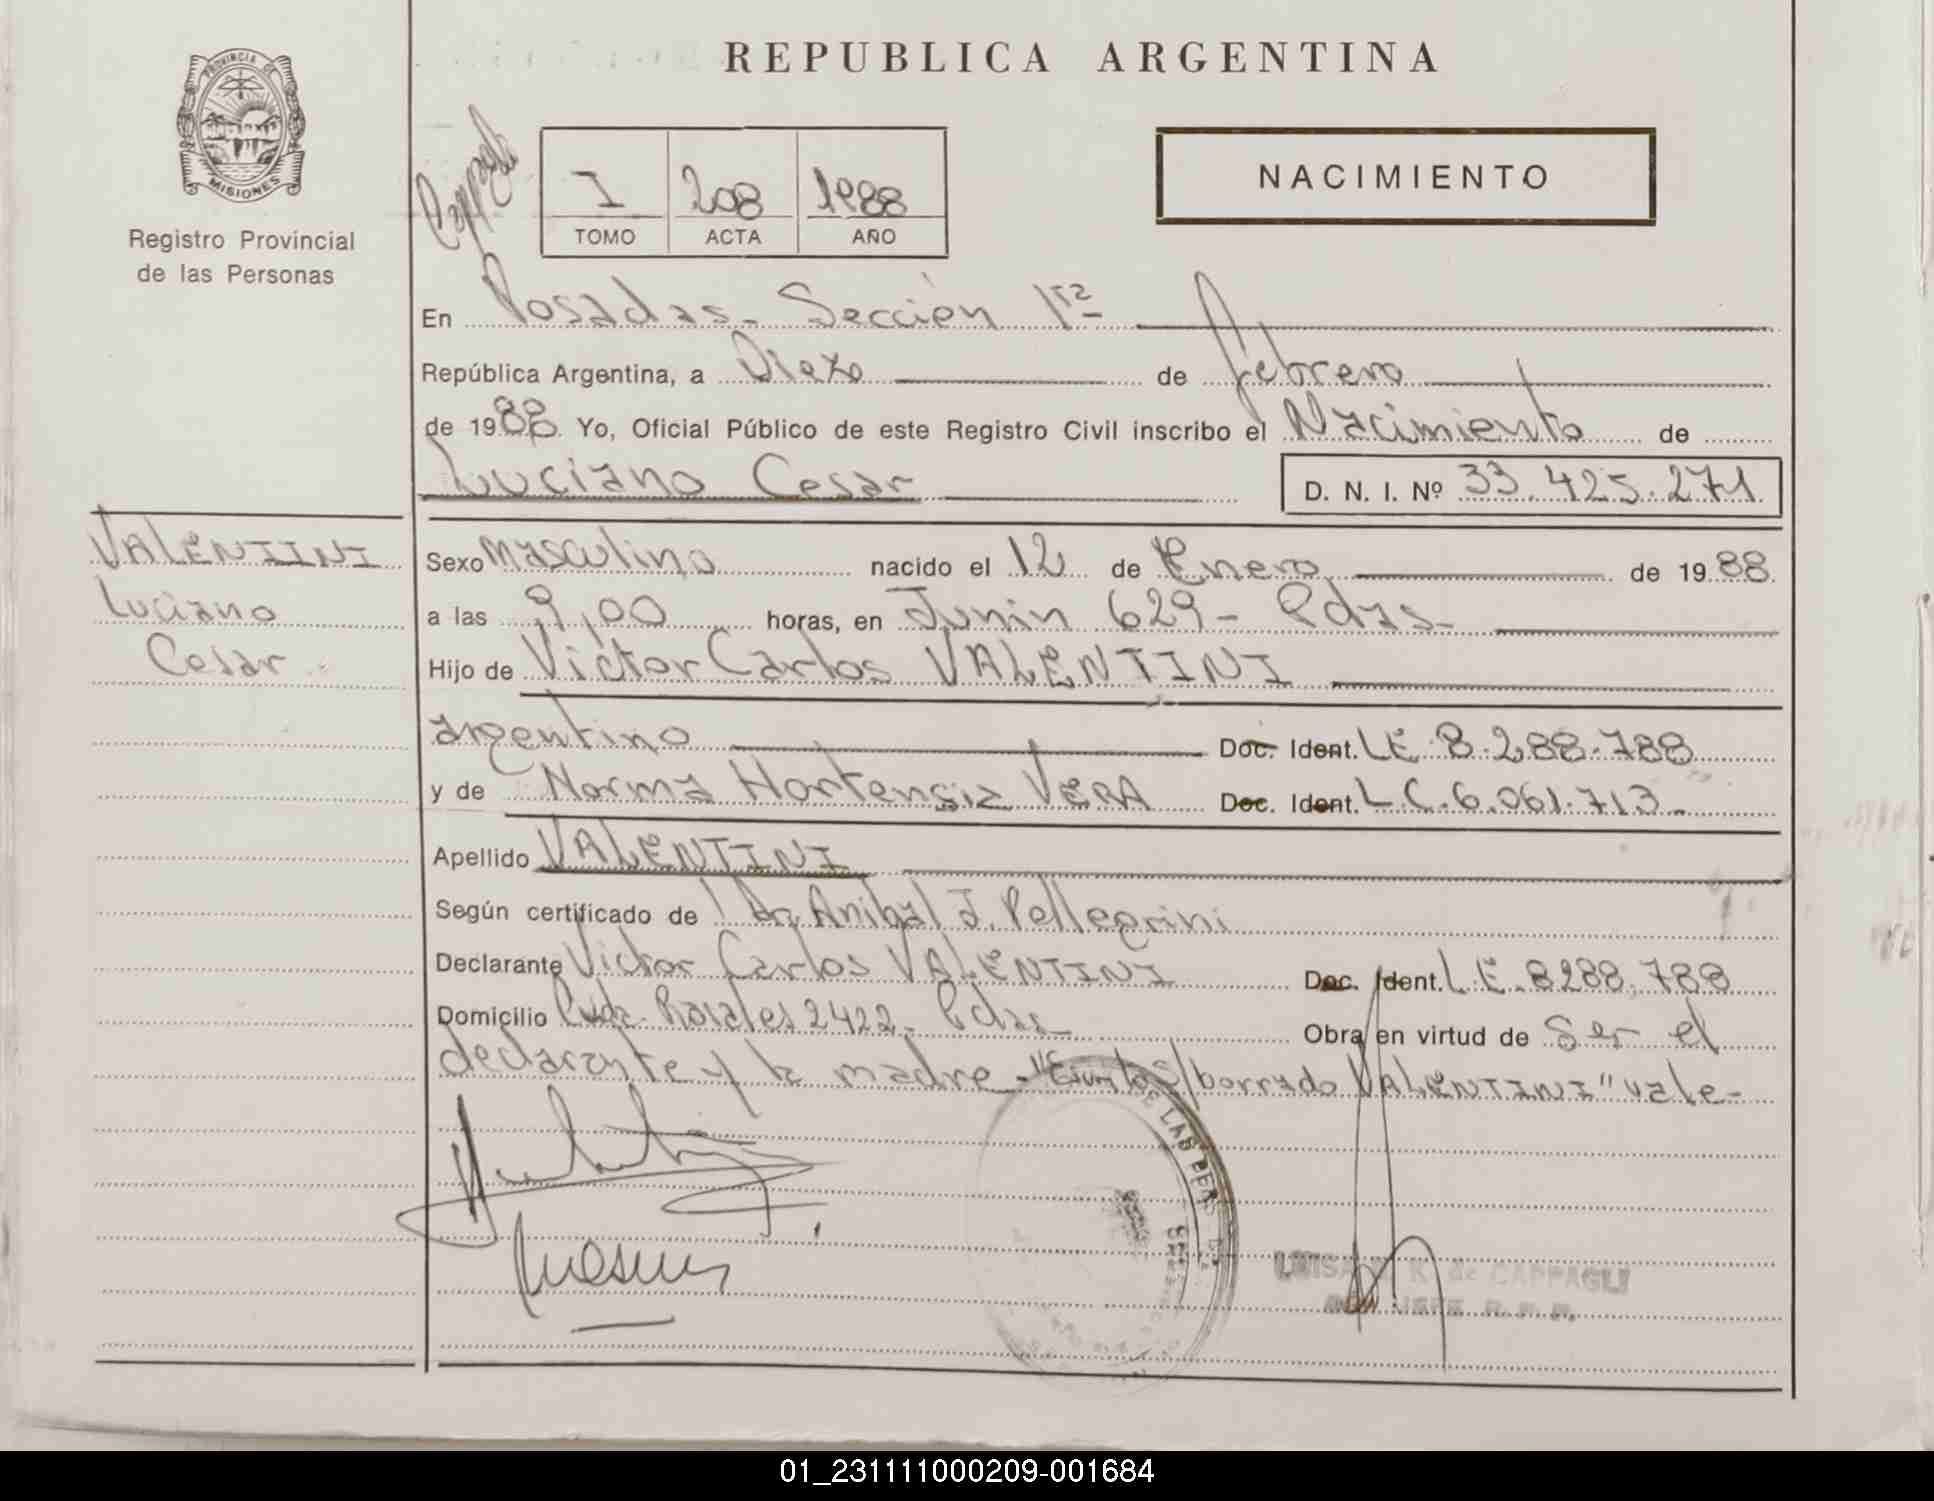 REPUBLICA ARGENTINA
PROVINCIA DE
MISIONES
Registro Provincial
de las Personas
I 208 1988
TOMO ACTA AÑO
NACIMIENTO
En Posadas - Sección 1ra
República Argentina, a Diez de febrero
de 1988 Yo, Oficial Público de este Registro Civil inscribo el Nacimiento de
Luciano Cesar D. N. I. Nº 33.425.271
VALENTINI
Luciano
Cesar
Sexo Masculino nacido el 12 de Enero de 1988
a las 9,00 horas, en Junin 629 - Pdas -
Hijo de Victor Carlos VALENTINI
argentino Doc. Ident. L E 8.288.788
y de Norma Hortensia VERA Doc. Ident. L C. 6.061.713 -
Apellido VALENTINI
Según certificado de Dr. Anibal J. Pellegrini
Declarante Victor Carlos VALENTINI Doc. Ident. L.E. 8288.788
Domicilio Rosales 2422 - Pdas - Obra en virtud de Ser el
declarante y la madre - s/borrado VALENTINI" vale -
DE LAS PER
de CAPPAGLI
01_231111000209-001684